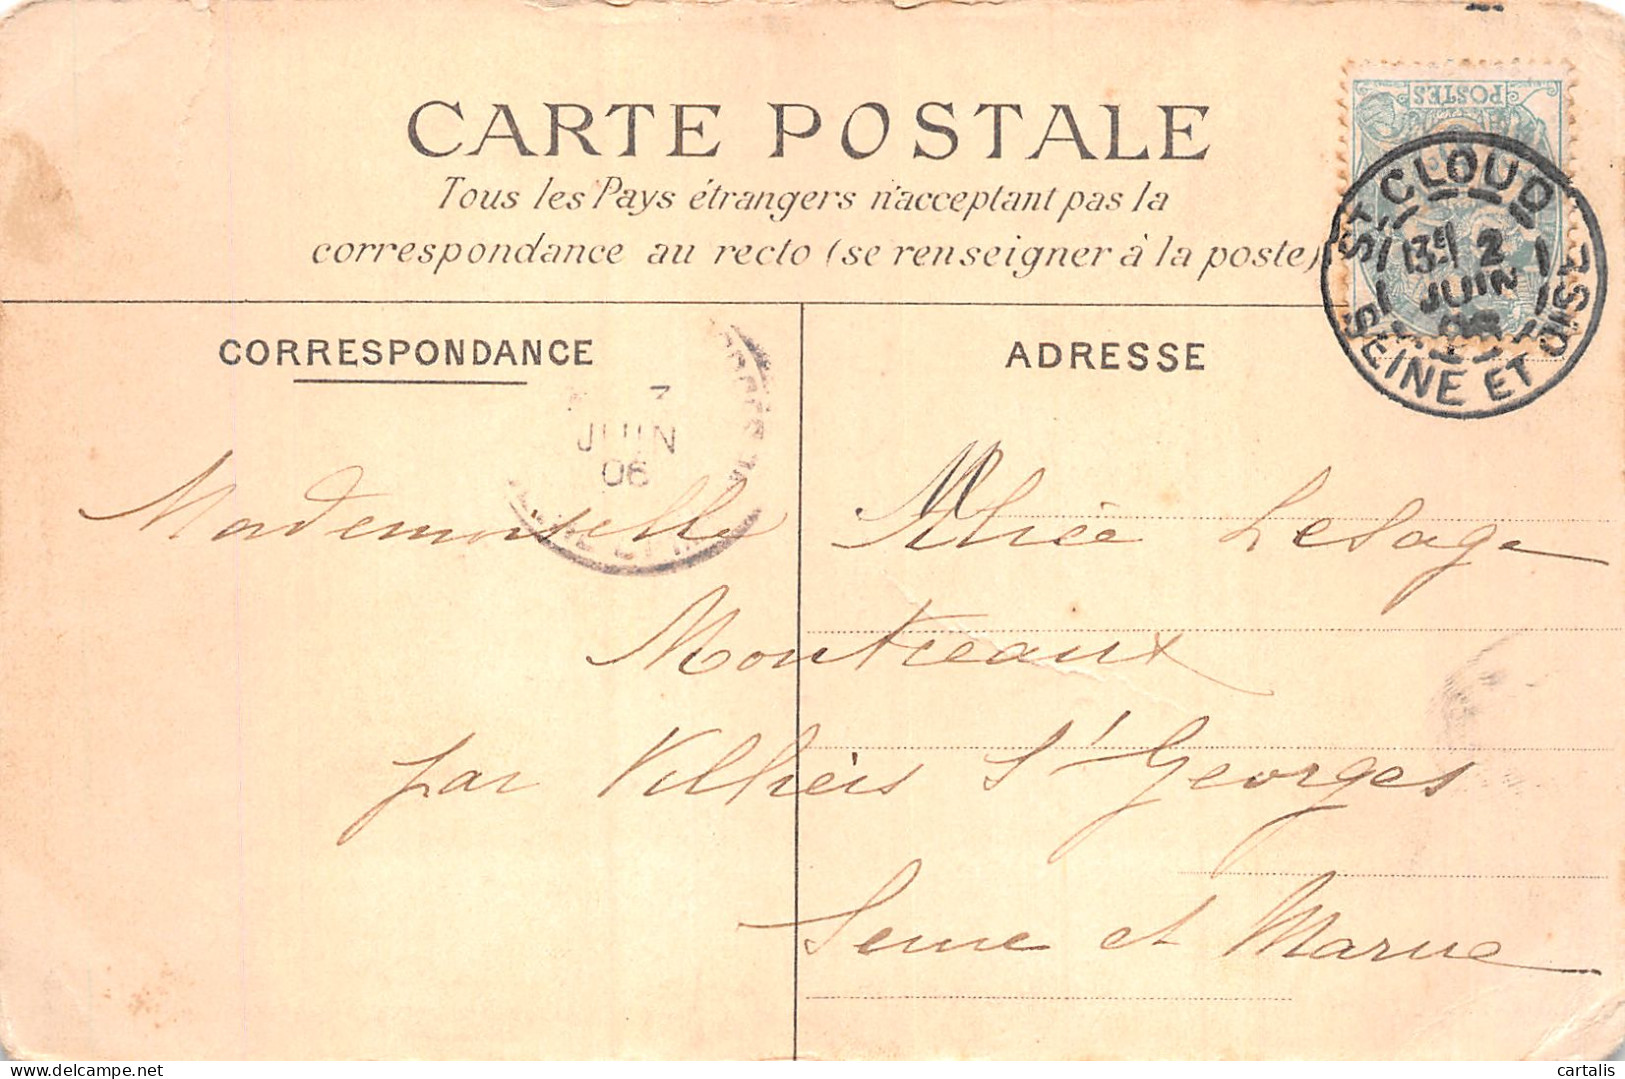 CARTE POSTALE
Tous les Pays étrangers n'acceptant pas la
correspondance au recto (se renseigner à la poste)
POSTES
ST CLOUD
13 2
JUIN
06
SEINE ET OISE
CORRESPONDANCE
ADRESSE
3
JUIN
06
Mademoiselle Alice Lesage
Montceaux
par Villiers St Georges
Seine et Marne
delcampe.net
cartalis